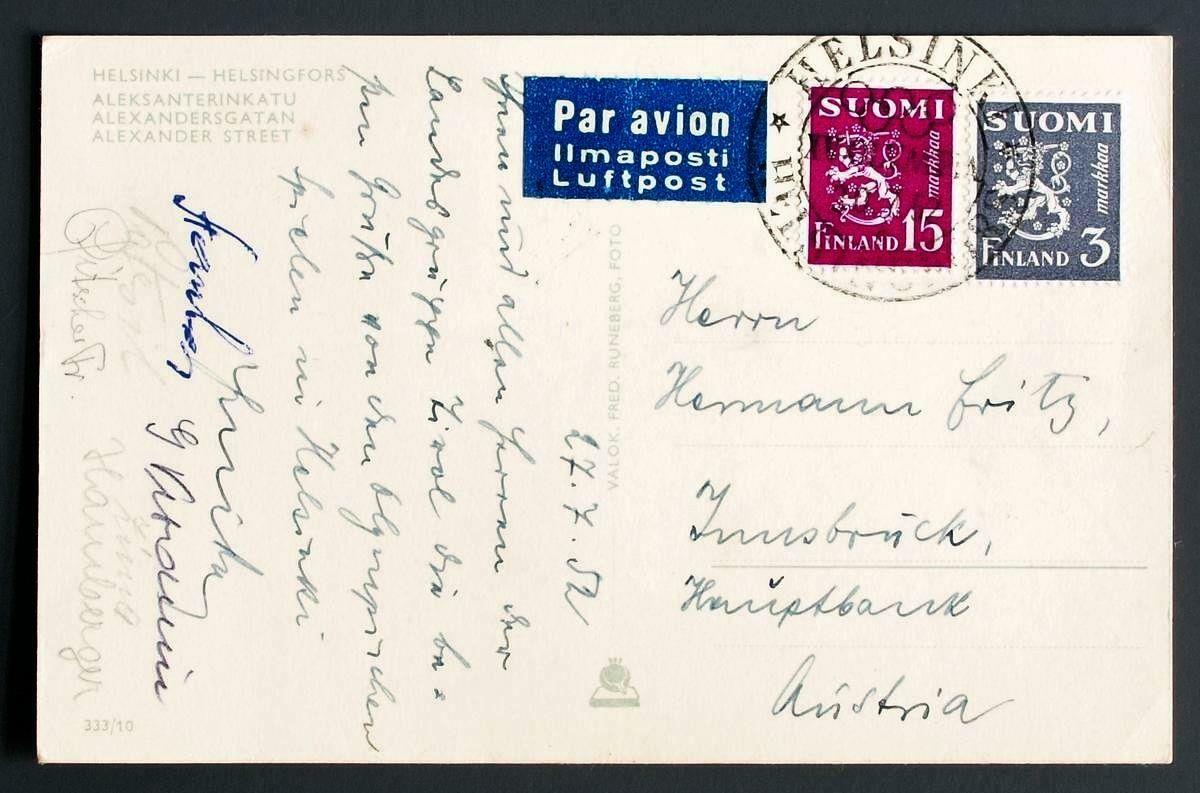 HELSINKI — HELSINGFORS
ALEKSANTERINKATU
ALEXANDERSGATAN
ALEXANDER STREET
Par avion
Ilmaposti
Luftpost
HELSINKI
SUOMI
markkaa
FINLAND 15
SUOMI
markkaa
FINLAND 3
27.7.52
Ihnen und allen Herren der
Landesgruppe Tirol die be=
sten Grüße von den Olympischen
Spielen in Helsinki
Hamberger
VALOK. FRED. RUNEBERG, FOTO
Herrn
Hermann Fritz,
Innsbrück,
Hauptbank
Austria
333/10